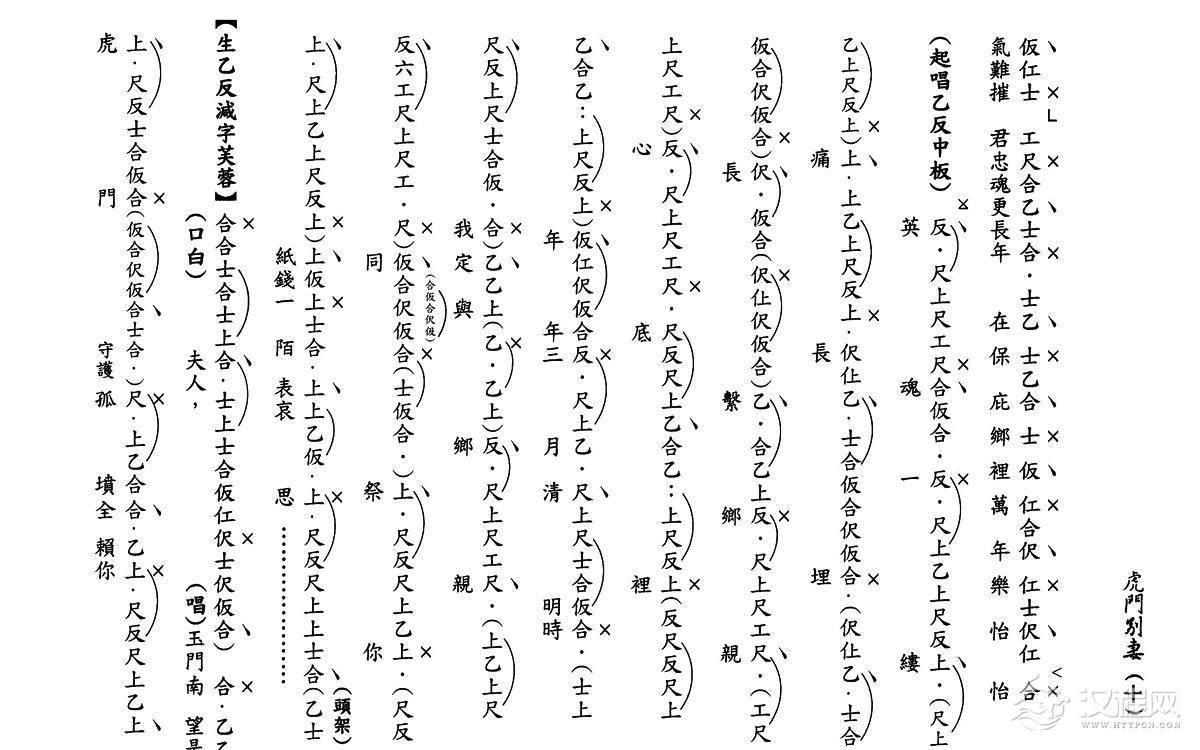 虎門別妻（十）
仮仜士 工尺合乙士合·士乙 士乙合士仮仜合伬 仜士伬仜合
氣難摧 君忠魂更長年 在保庇鄉裡萬年樂怡怡
（起唱乙反中板） 反·尺上尺工尺合仮合·反·尺上乙上尺反上·（尺上
英 魂 一 縷
乙上尺反上）上·上乙上尺反上·伬仩乙·士合仮合伬仮合·（伬仩乙·士合
痛 長 埋
仮合伬仮合）伬·仮合（伬仩伬仮合）乙·合乙上反·尺上尺工尺·（工尺
長 繫 鄉 親
上尺工尺）反·尺上尺工尺·尺反尺上乙合乙：上尺反上（反尺反尺上
心 底 裡
乙合乙：上尺反上）仮仜伬仮合反·尺上乙·尺士合仮合·（士上
年 年三 月清 明時
尺反上尺士合仮·合）乙乙上（乙·乙上）反·尺上尺工尺·（上乙上尺
我定與 鄉 親
反六工尺上尺工·尺）仮合伬仮合（士仮合·）上·尺反尺上乙上·（尺反
（合仮合伬伋）
同 祭 你
上·尺上乙上尺反上）上仮上士合·上上乙仮·上·尺反尺上上士合（乙士
（頭架）
紙錢一 陌表哀 思………………
【生乙反減字芙蓉】合合士合士上合·士上士合仮仜伬士伬仮合）合·乙
（口白） 夫人， （唱）玉門南 望是
上·尺反士合仮合（仮合伬仮合士合·）尺·上乙合合·乙上·尺反尺上乙上
虎 門 守護孤 墳全賴你